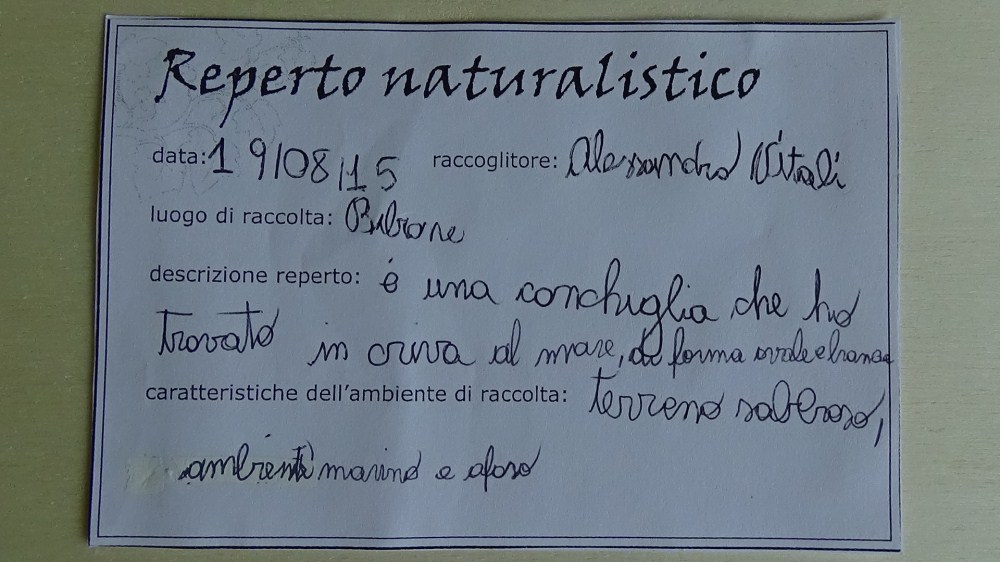 Reperto naturalistico
data: 19/08/15 raccoglitore: Alessandro Vitali
luogo di raccolta: Bibione
descrizione reperto: è una conchiglia che ho
trovato in oriva al mare, di forma ovale e bianca
caratteristiche dell'ambiente di raccolta: terreno sabbioso,
ambiente marino e afoso